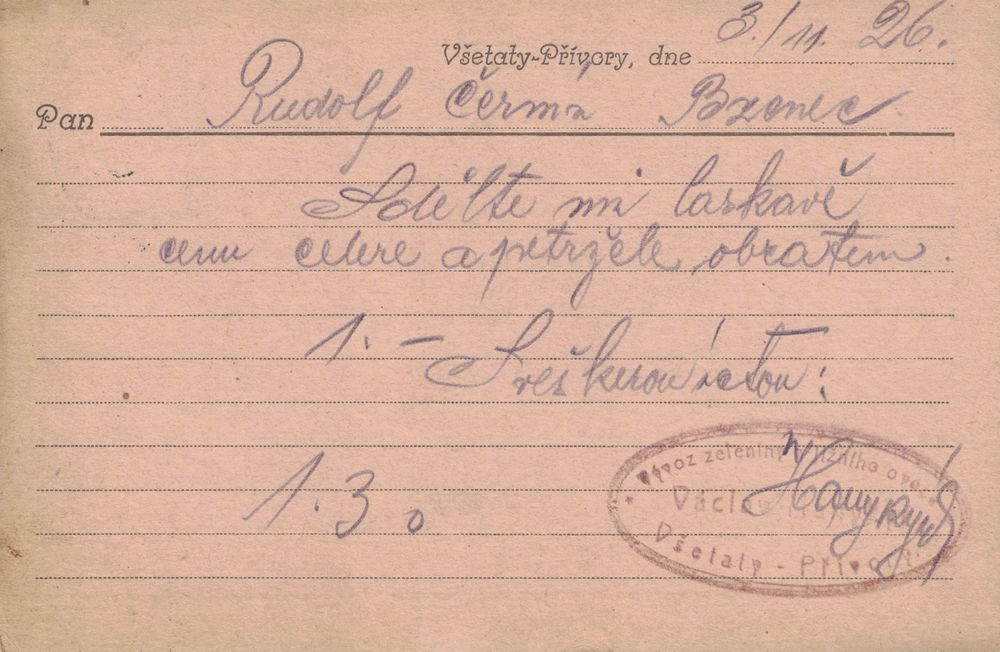 Všetaty-Přívory, dne 3./11. 26.
Pan Rudolf Čermá Bzenec
Sdělte mi laskavě
cenu celere a petržele obratem.
1.—
S veškerou úctou:
1.30
Vývoz zeleniny
Václ
Všetaly - Přívory